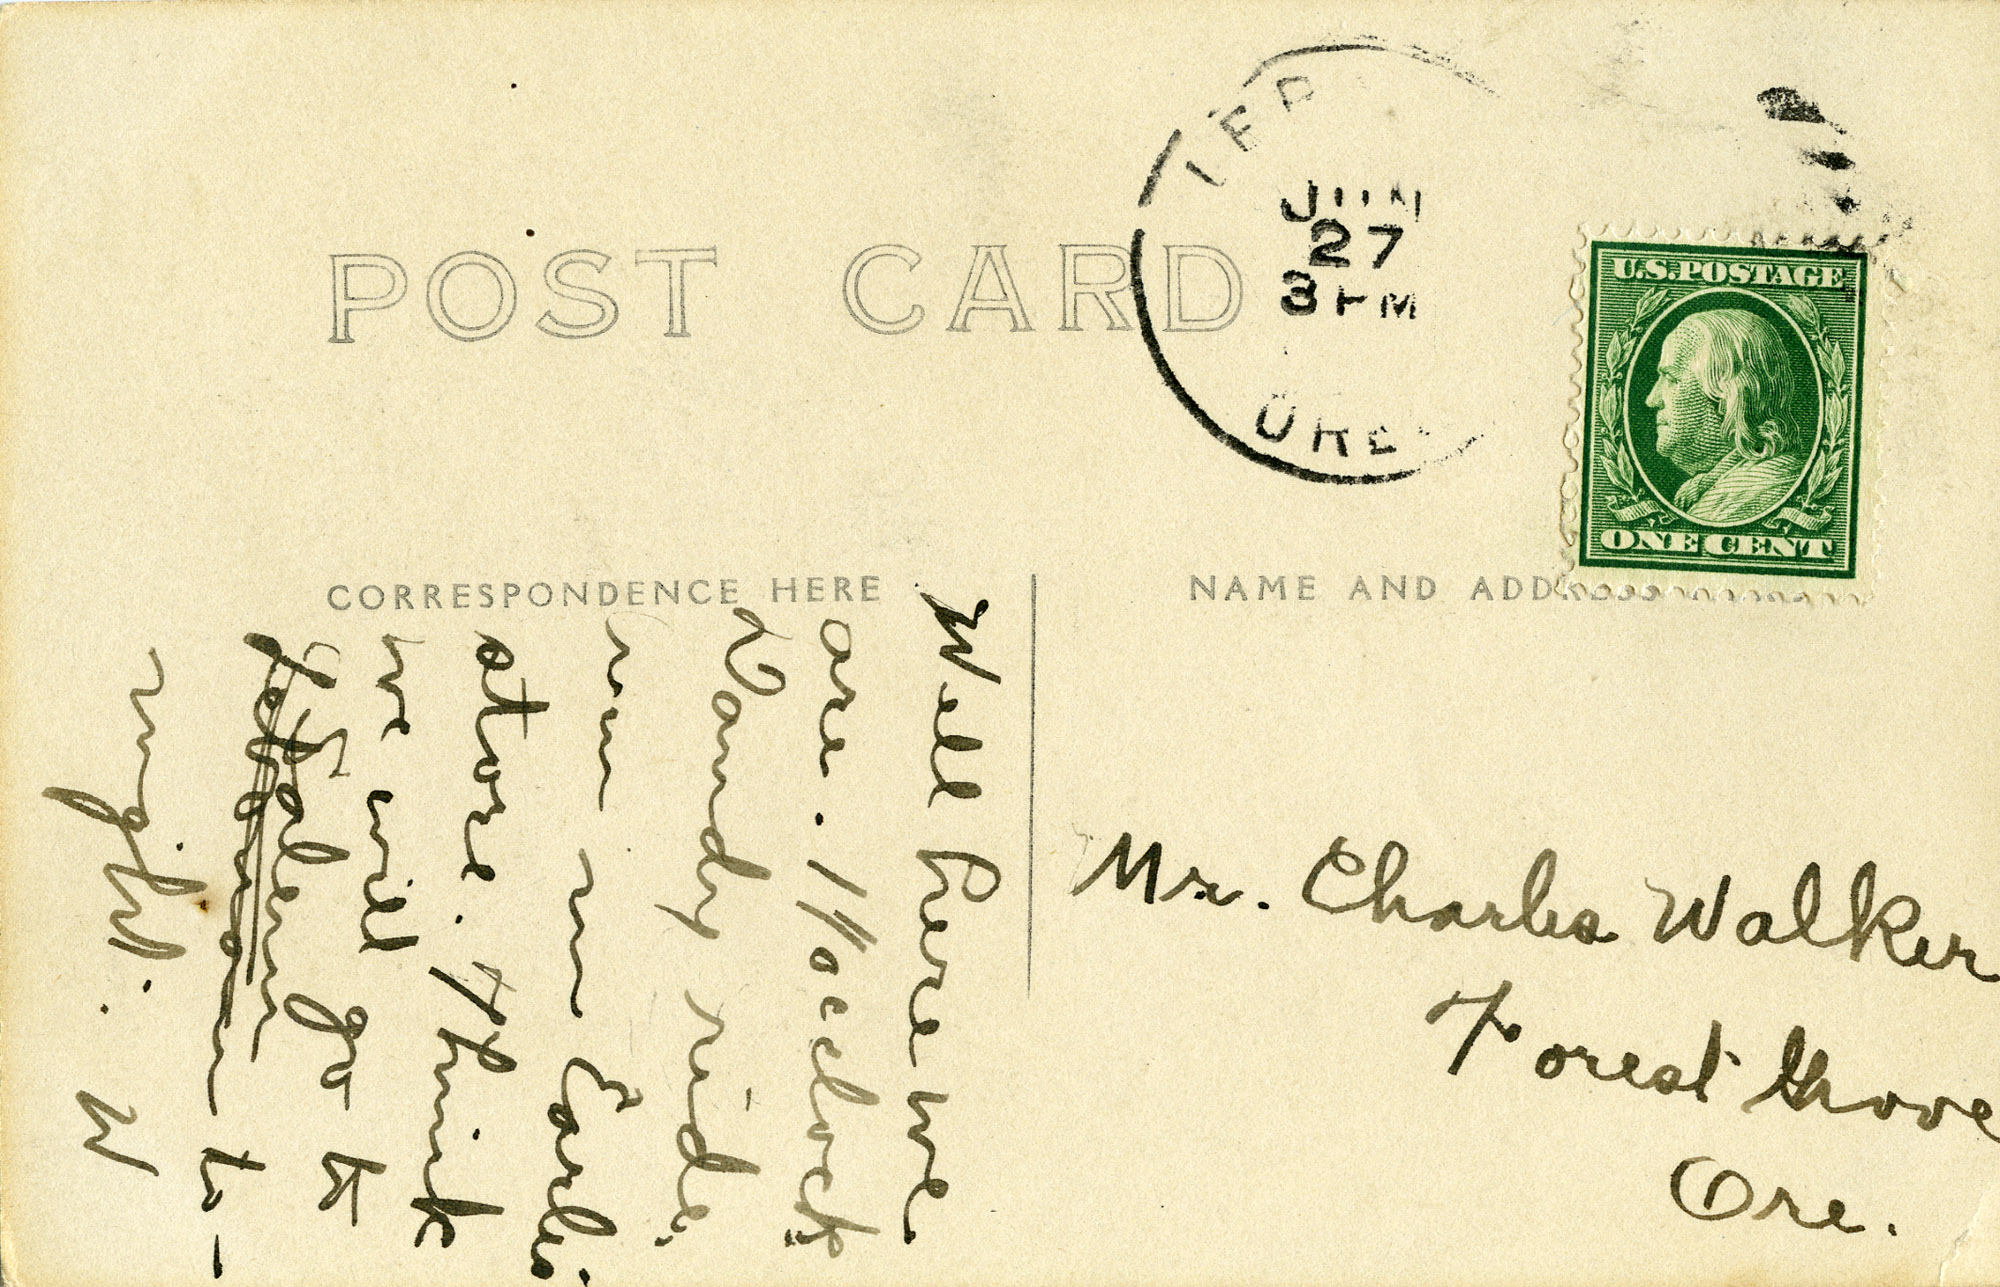 POST CARD
JUN
27
3 PM
ORE
U.S. POSTAGE
ONE CENT
CORRESPONDENCE HERE
NAME AND ADD
Well here we
are. 11 oclock
Dandy ride.
am in Earls
store. think
we will go to
Salem
Lebanon to-
night. W
Mr. Charles Walker
Forest Grove
Ore.